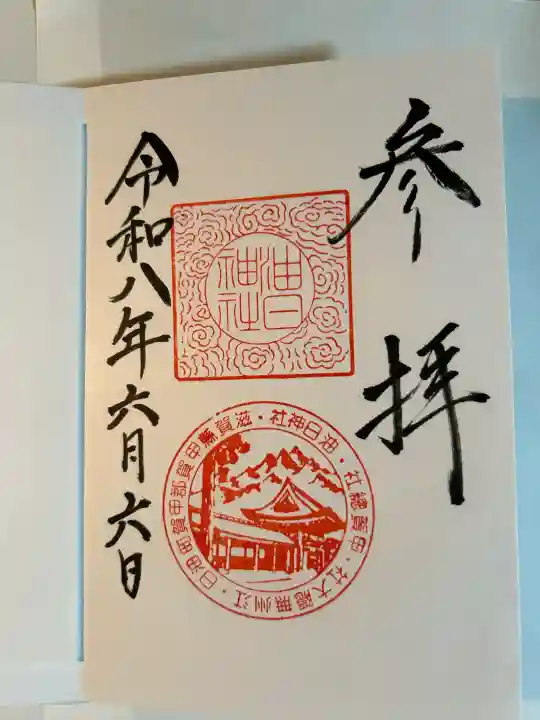 参拝
油日
神社
油日神社・滋賀縣甲賀郡甲賀町油日・江州無隠大社・甲賀總社
令和八年六月六日